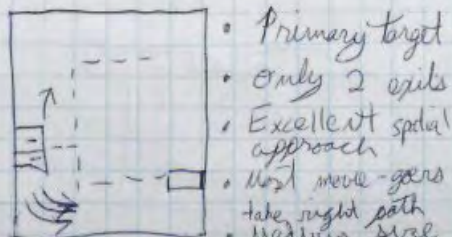 • Primary target
• Only 2 exits
• Excellent spatial
approach
• Most movie-goers
take right path